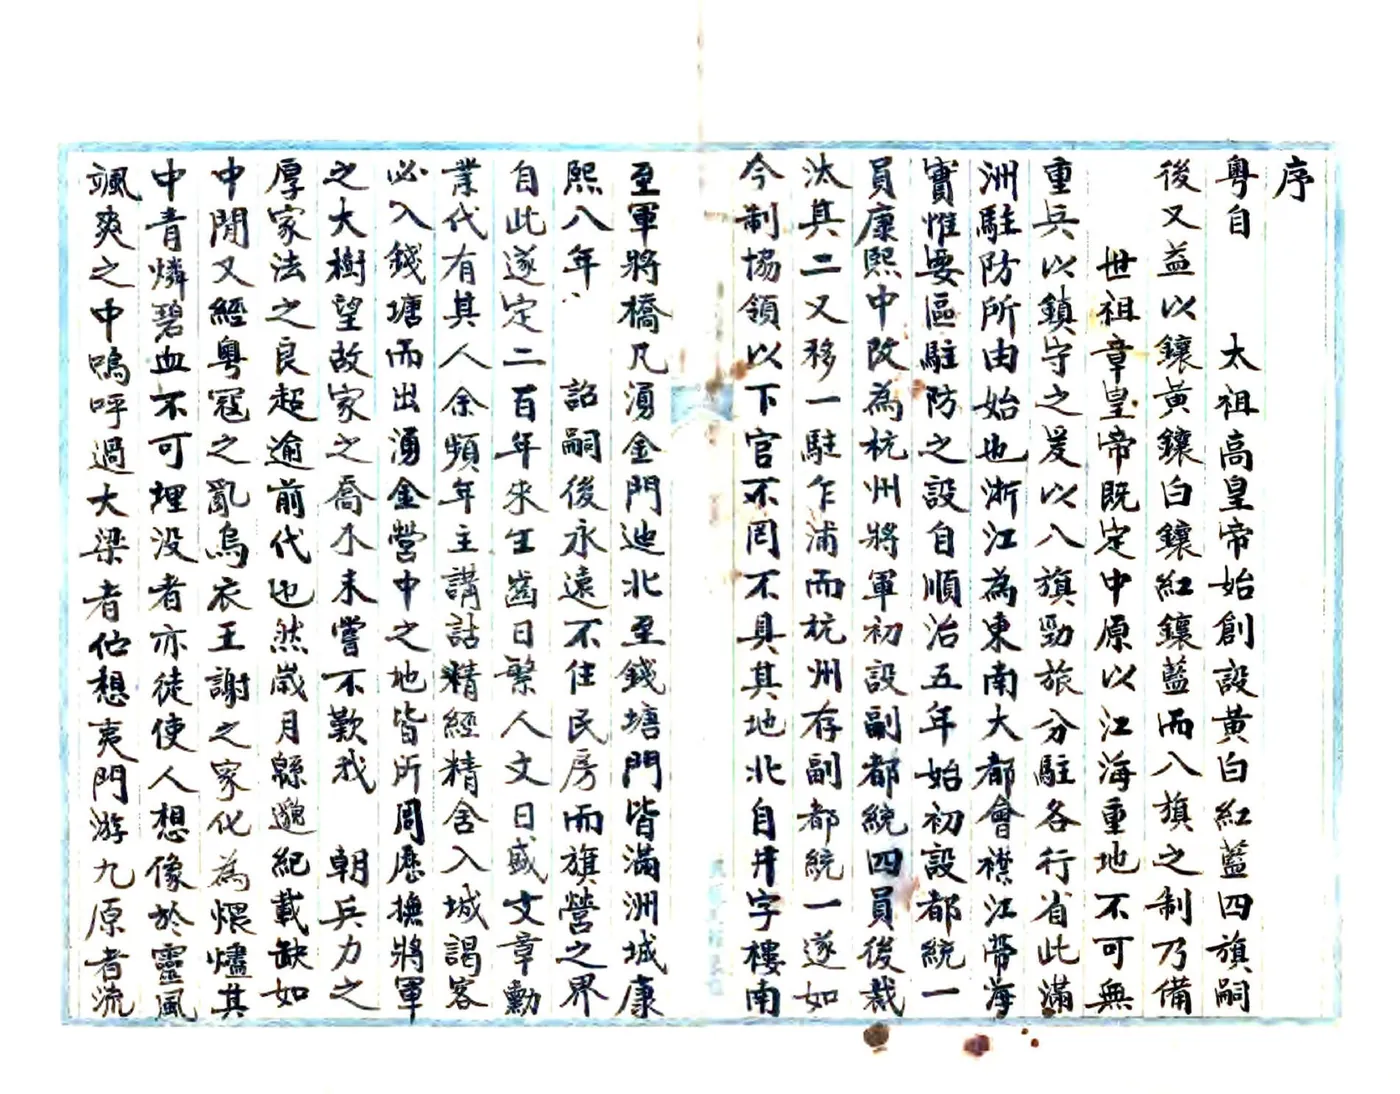 序
粵自　太祖高皇帝始創設黃白紅藍四旗嗣
後又益以鑲黃鑲白鑲紅鑲藍而八旗之制乃備
世祖章皇帝既定中原以江海重地不可無
重兵以鎮守之爰以八旗勁旅分駐各行省此滿
洲駐防所由始也浙江為東南大都會襟江帶海
實惟要區駐防之設自順治五年始初設都統一
員康熙中改為杭州將軍初設副都統四員後裁
汰其二又移一駐乍浦而杭州存副都統一遂如
今制協領以下官不罔不具其地北自井字樓南
至軍將橋凡湧金門迆北至錢塘門皆滿洲城康
熙八年　詔嗣後永遠不住民房而旗營之界
自此遂定二百年來生齒日繁人文日盛文章勳
業代有其人余頻年主講詁精經精舍入城謁客
必入錢塘而出湧金營中之地皆所周歷撫將軍
之大樹望故家之喬木未嘗不歎我　朝兵力之
厚家法之良超逾前代也然歲月緜邈紀載缺如
中間又經粵寇之亂烏衣王謝之家化為煨燼其
中青燐碧血不可埋没者亦徒使人想像於靈風
颯爽之中嗚呼過大梁者佁想夷門游九原者流